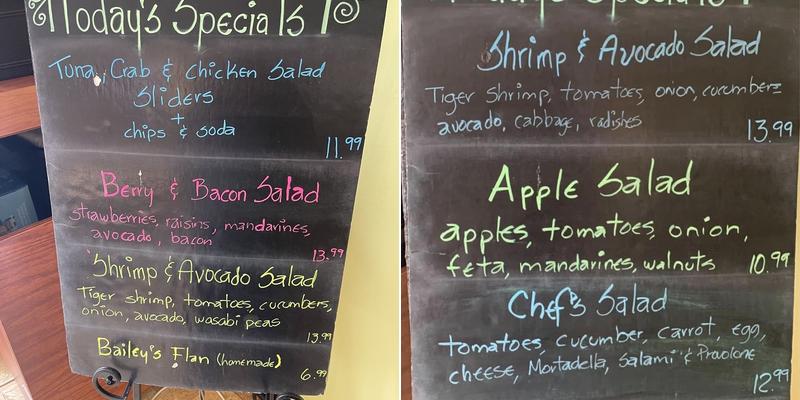 Today's Specials!
Tuna, Crab & Chicken Salad
Sliders
+
chips & soda
11.99
Berry & Bacon Salad
strawberries, raisins, mandarines,
avocado, bacon
13.99
Shrimp & Avocado Salad
Tiger shrimp, tomatoes, cucumbers,
onion, avocado, wasabi peas
13.99
Bailey's Flan (homemade)
6.99
Shrimp & Avocado Salad
Tiger Shrimp, tomatoes, onion, cucumbers
avocado, cabbage, radishes
13.99
Apple Salad
apples, tomatoes, onion,
feta, mandarines, walnuts 10.99
Chef's Salad
tomatoes, cucumber, carrot, egg,
cheese, Mortadella, Salami & Provolone
12.99